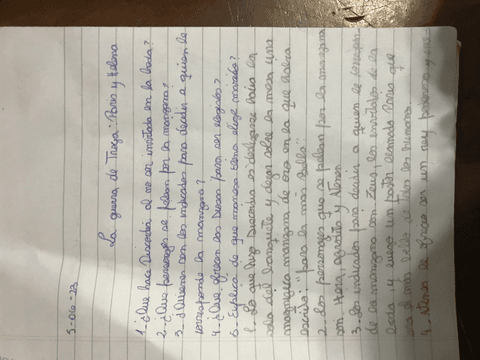 5-06-23
La guerra de Troya: Paris y Helena
1- ¿Que hace Discordia al no ser invitada en la boda?
2- ¿Que personajes se pelean por la manzana?
3- ¿Quienes son los indicados para decidir a quien le
corresponde la manzana?
4- ¿Que ofrecen las Diosas para ser elegidas?
5- Explica de que manera Elena elige marido?
1- Lo que hizo Discordia es deslizarse hacia la
sala del banquete y dejar sobre la mesa una
magnifica manzana de oro en la que habia
escrito: "para la más Bella"
2- Los personajes que se pelean por la manzana
son Hera, y
3- Los indicados para decidir a quien le
de la manzana son Zeus, los invitados de la
boda y luego un pastor llamado Paris que
era el más bello de los humanos
4- le ofrece ser un rey poderoso y